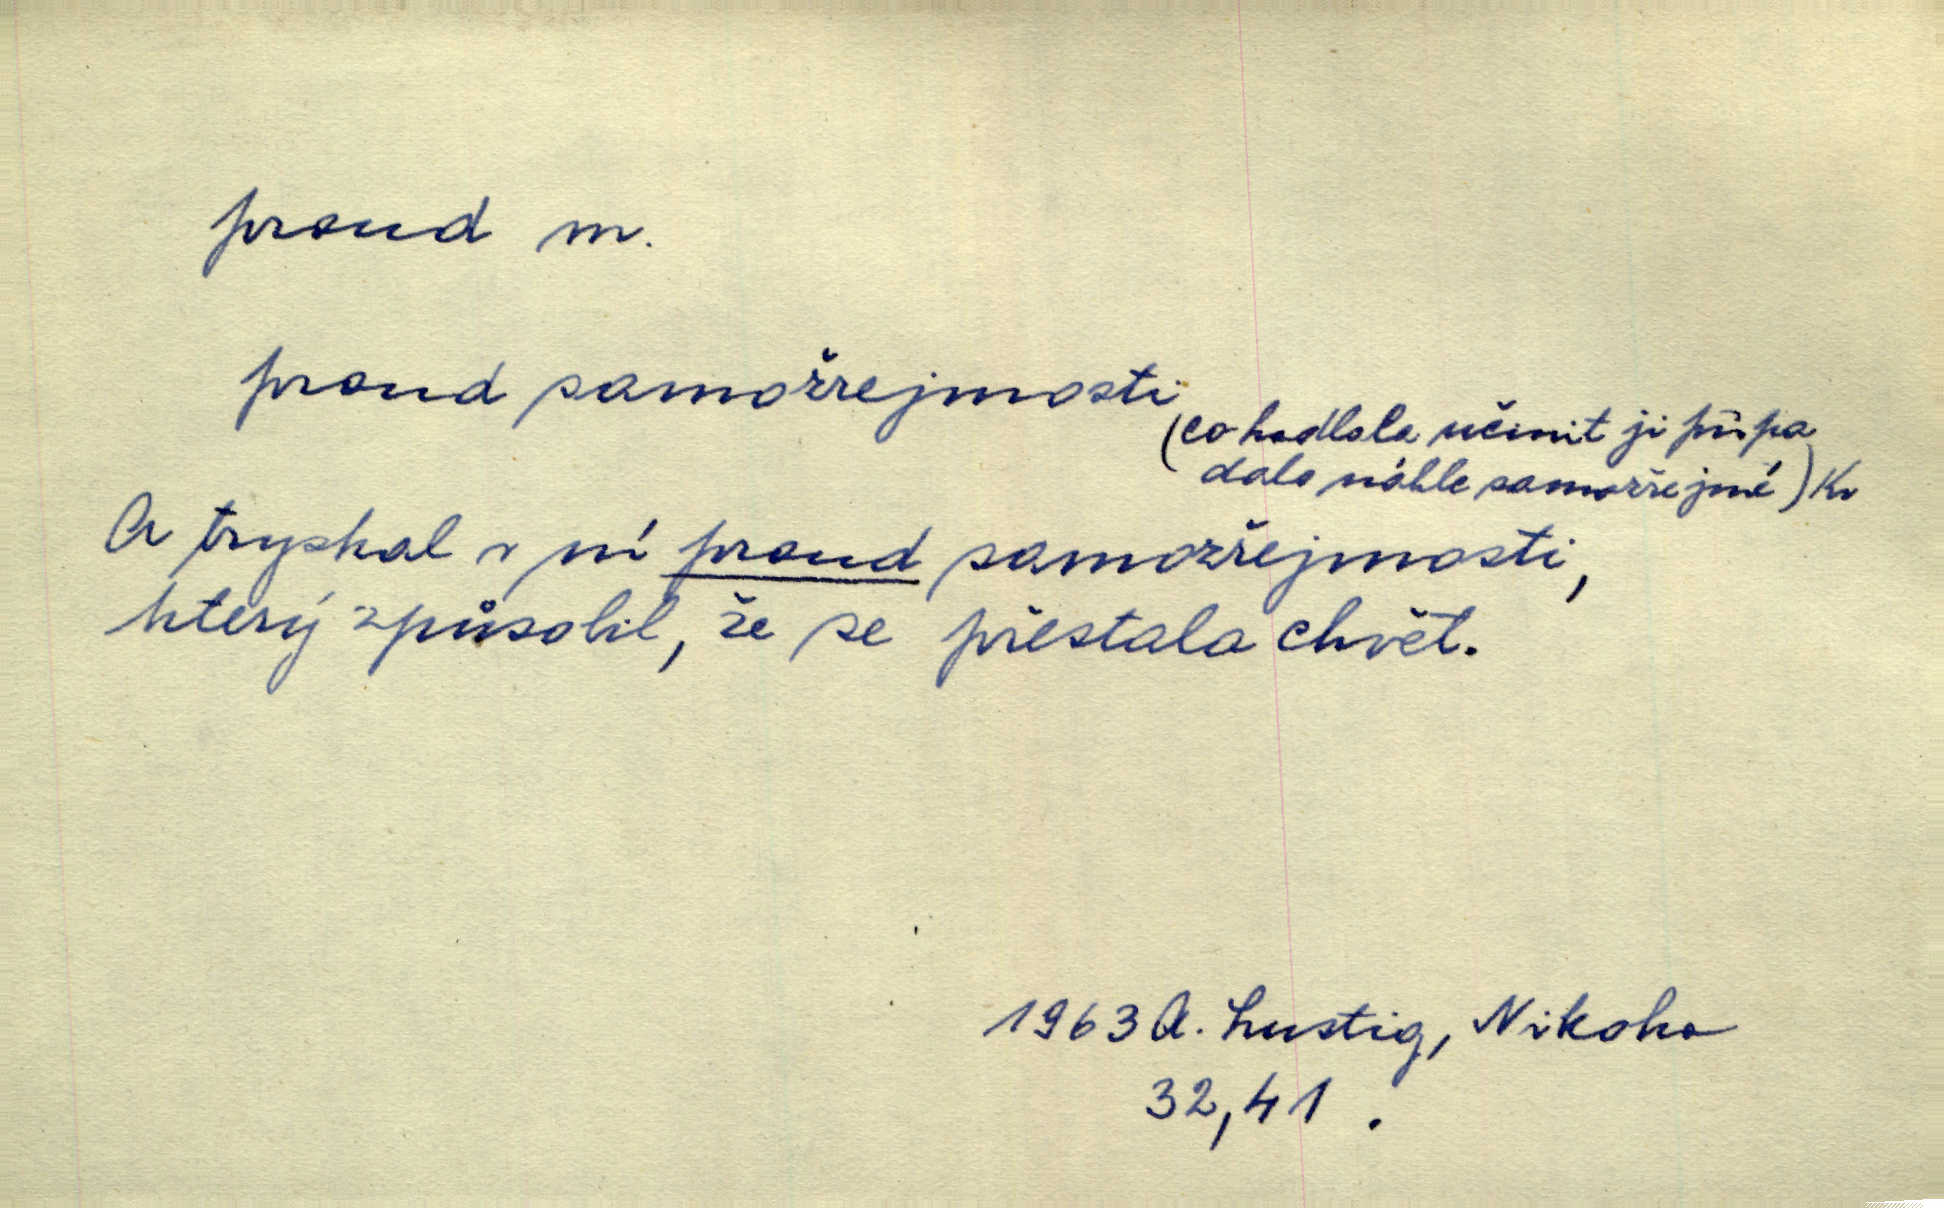 proud m.
proud samozřejmosti
(co hodlala učinit jí připa
dalo náhle samozřejmé) Kv
A tryskal v ní proud samozřejmosti,
který způsobil, že se přestala chvět.
1963 A. Lustig, Nikoho
32,41.